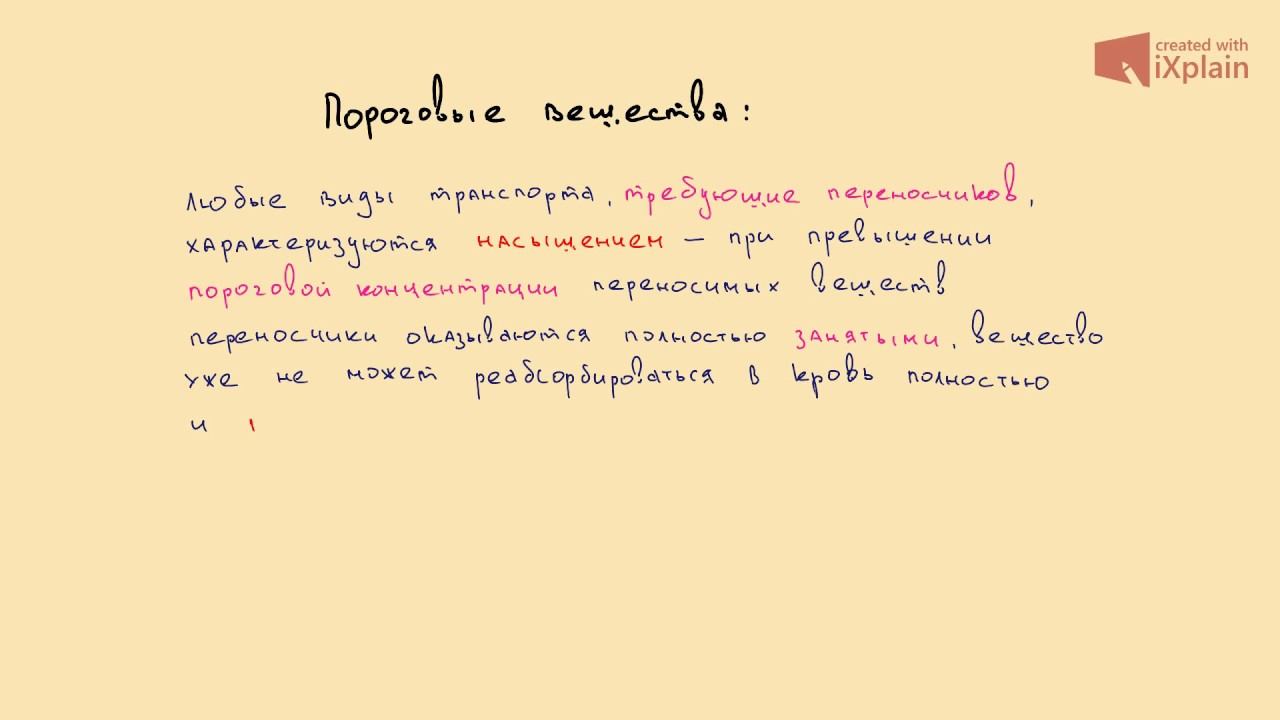 created with
iXplain
Пороговые вещества:
Любые виды транспорта, требующие переносчиков,
характеризуются насыщением – при превышении
пороговой концентрации переносимых веществ
переносчики оказываются полностью занятыми, вещество
уже не может реабсорбироваться в кровь полностью
и